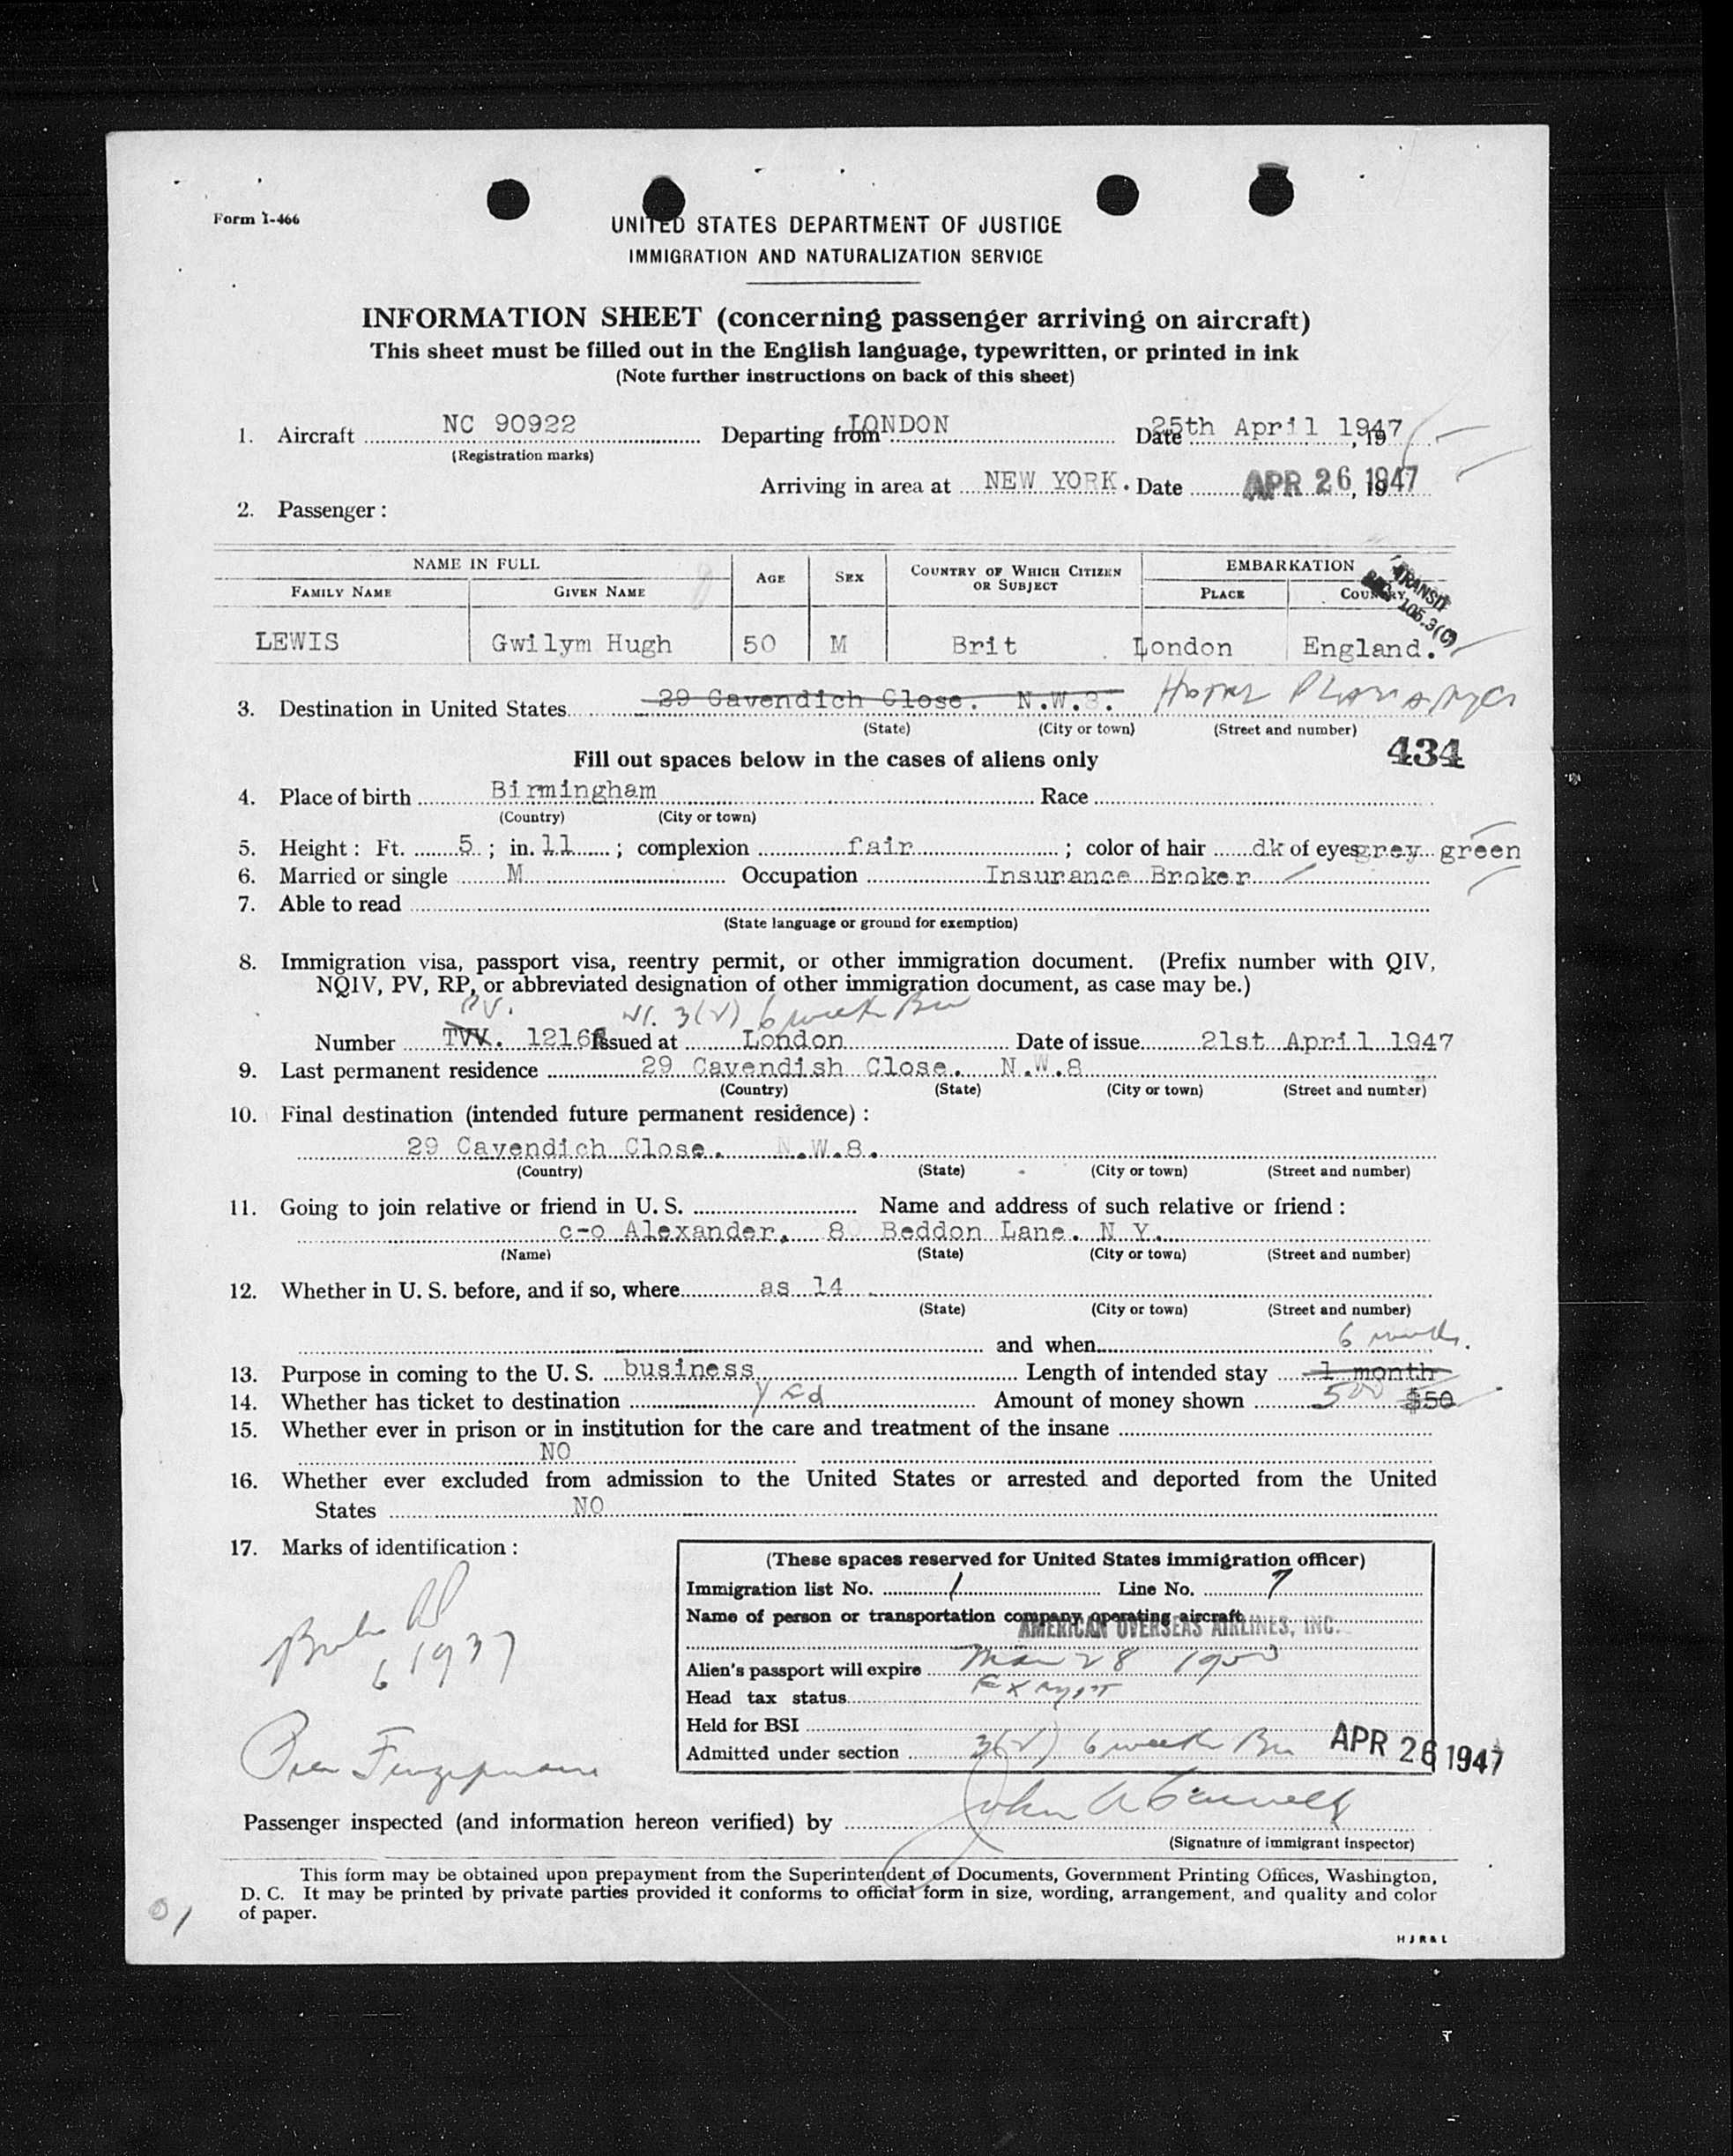 Form I-466
UNITED STATES DEPARTMENT OF JUSTICE
IMMIGRATION AND NATURALIZATION SERVICE
INFORMATION SHEET (concerning passenger arriving on aircraft)
This sheet must be filled out in the English language, typewritten, or printed in ink
(Note further instructions on back of this sheet)
1. Aircraft NC 90922 Departing from LONDON Date 25th April 1947, 19
(Registration marks)
Arriving in area at NEW YORK. Date APR 26, 1947
2. Passenger:
NAME IN FULL EMBARKATION
FAMILY NAME GIVEN NAME AGE SEX COUNTRY OF WHICH CITIZEN OR SUBJECT PLACE COUNTRY
TRANSIT
105.3(C)
LEWIS Gwilym Hugh 50 M Brit London England.
3. Destination in United States 29 Cavendich Close. N.W.8. Hotel
(State) (City or town) (Street and number)
Fill out spaces below in the cases of aliens only 434
4. Place of birth Birmingham Race
(Country) (City or town)
5. Height: Ft. 5; in. 11; complexion fair; color of hair dk of eyes grey green
6. Married or single M Occupation Insurance Broker
7. Able to read
(State language or ground for exemption)
8. Immigration visa, passport visa, reentry permit, or other immigration document. (Prefix number with QIV,
NQIV, PV, RP, or abbreviated designation of other immigration document, as case may be.)
PV. 3(2) 6 weeks Bu
Number TVV. 1216 Issued at London Date of issue 21st April 1947
9. Last permanent residence 29 Cavendish Close. N.W.8
(Country) (State) (City or town) (Street and number)
10. Final destination (intended future permanent residence):
29 Cavendich Close. N.W.8.
(Country) (State) (City or town) (Street and number)
11. Going to join relative or friend in U. S. Name and address of such relative or friend:
c-o Alexander, 80 Beddon Lane. N Y.
(Name) (State) (City or town) (Street and number)
12. Whether in U. S. before, and if so, where as 14
(State) (City or town) (Street and number)
and when 6 weeks.
13. Purpose in coming to the U. S. business Length of intended stay 1 month
14. Whether has ticket to destination Amount of money shown 500 $50
15. Whether ever in prison or in institution for the care and treatment of the insane
NO
16. Whether ever excluded from admission to the United States or arrested and deported from the United
States NO
17. Marks of identification:
(These spaces reserved for United States immigration officer)
Immigration list No. 1 Line No. 7
Name of person or transportation company operating aircraft
AMERICAN OVERSEAS AIRLINES, INC.
6 1937
Alien's passport will expire Mar 28
Head tax status Exempt
Held for BSI
Admitted under section 3(2) 6 weeks Bu APR 26 1947
Passenger inspected (and information hereon verified) by John A
(Signature of immigrant inspector)
This form may be obtained upon prepayment from the Superintendent of Documents, Government Printing Offices, Washington,
D. C. It may be printed by private parties provided it conforms to official form in size, wording, arrangement, and quality and color
of paper.
H J R & L